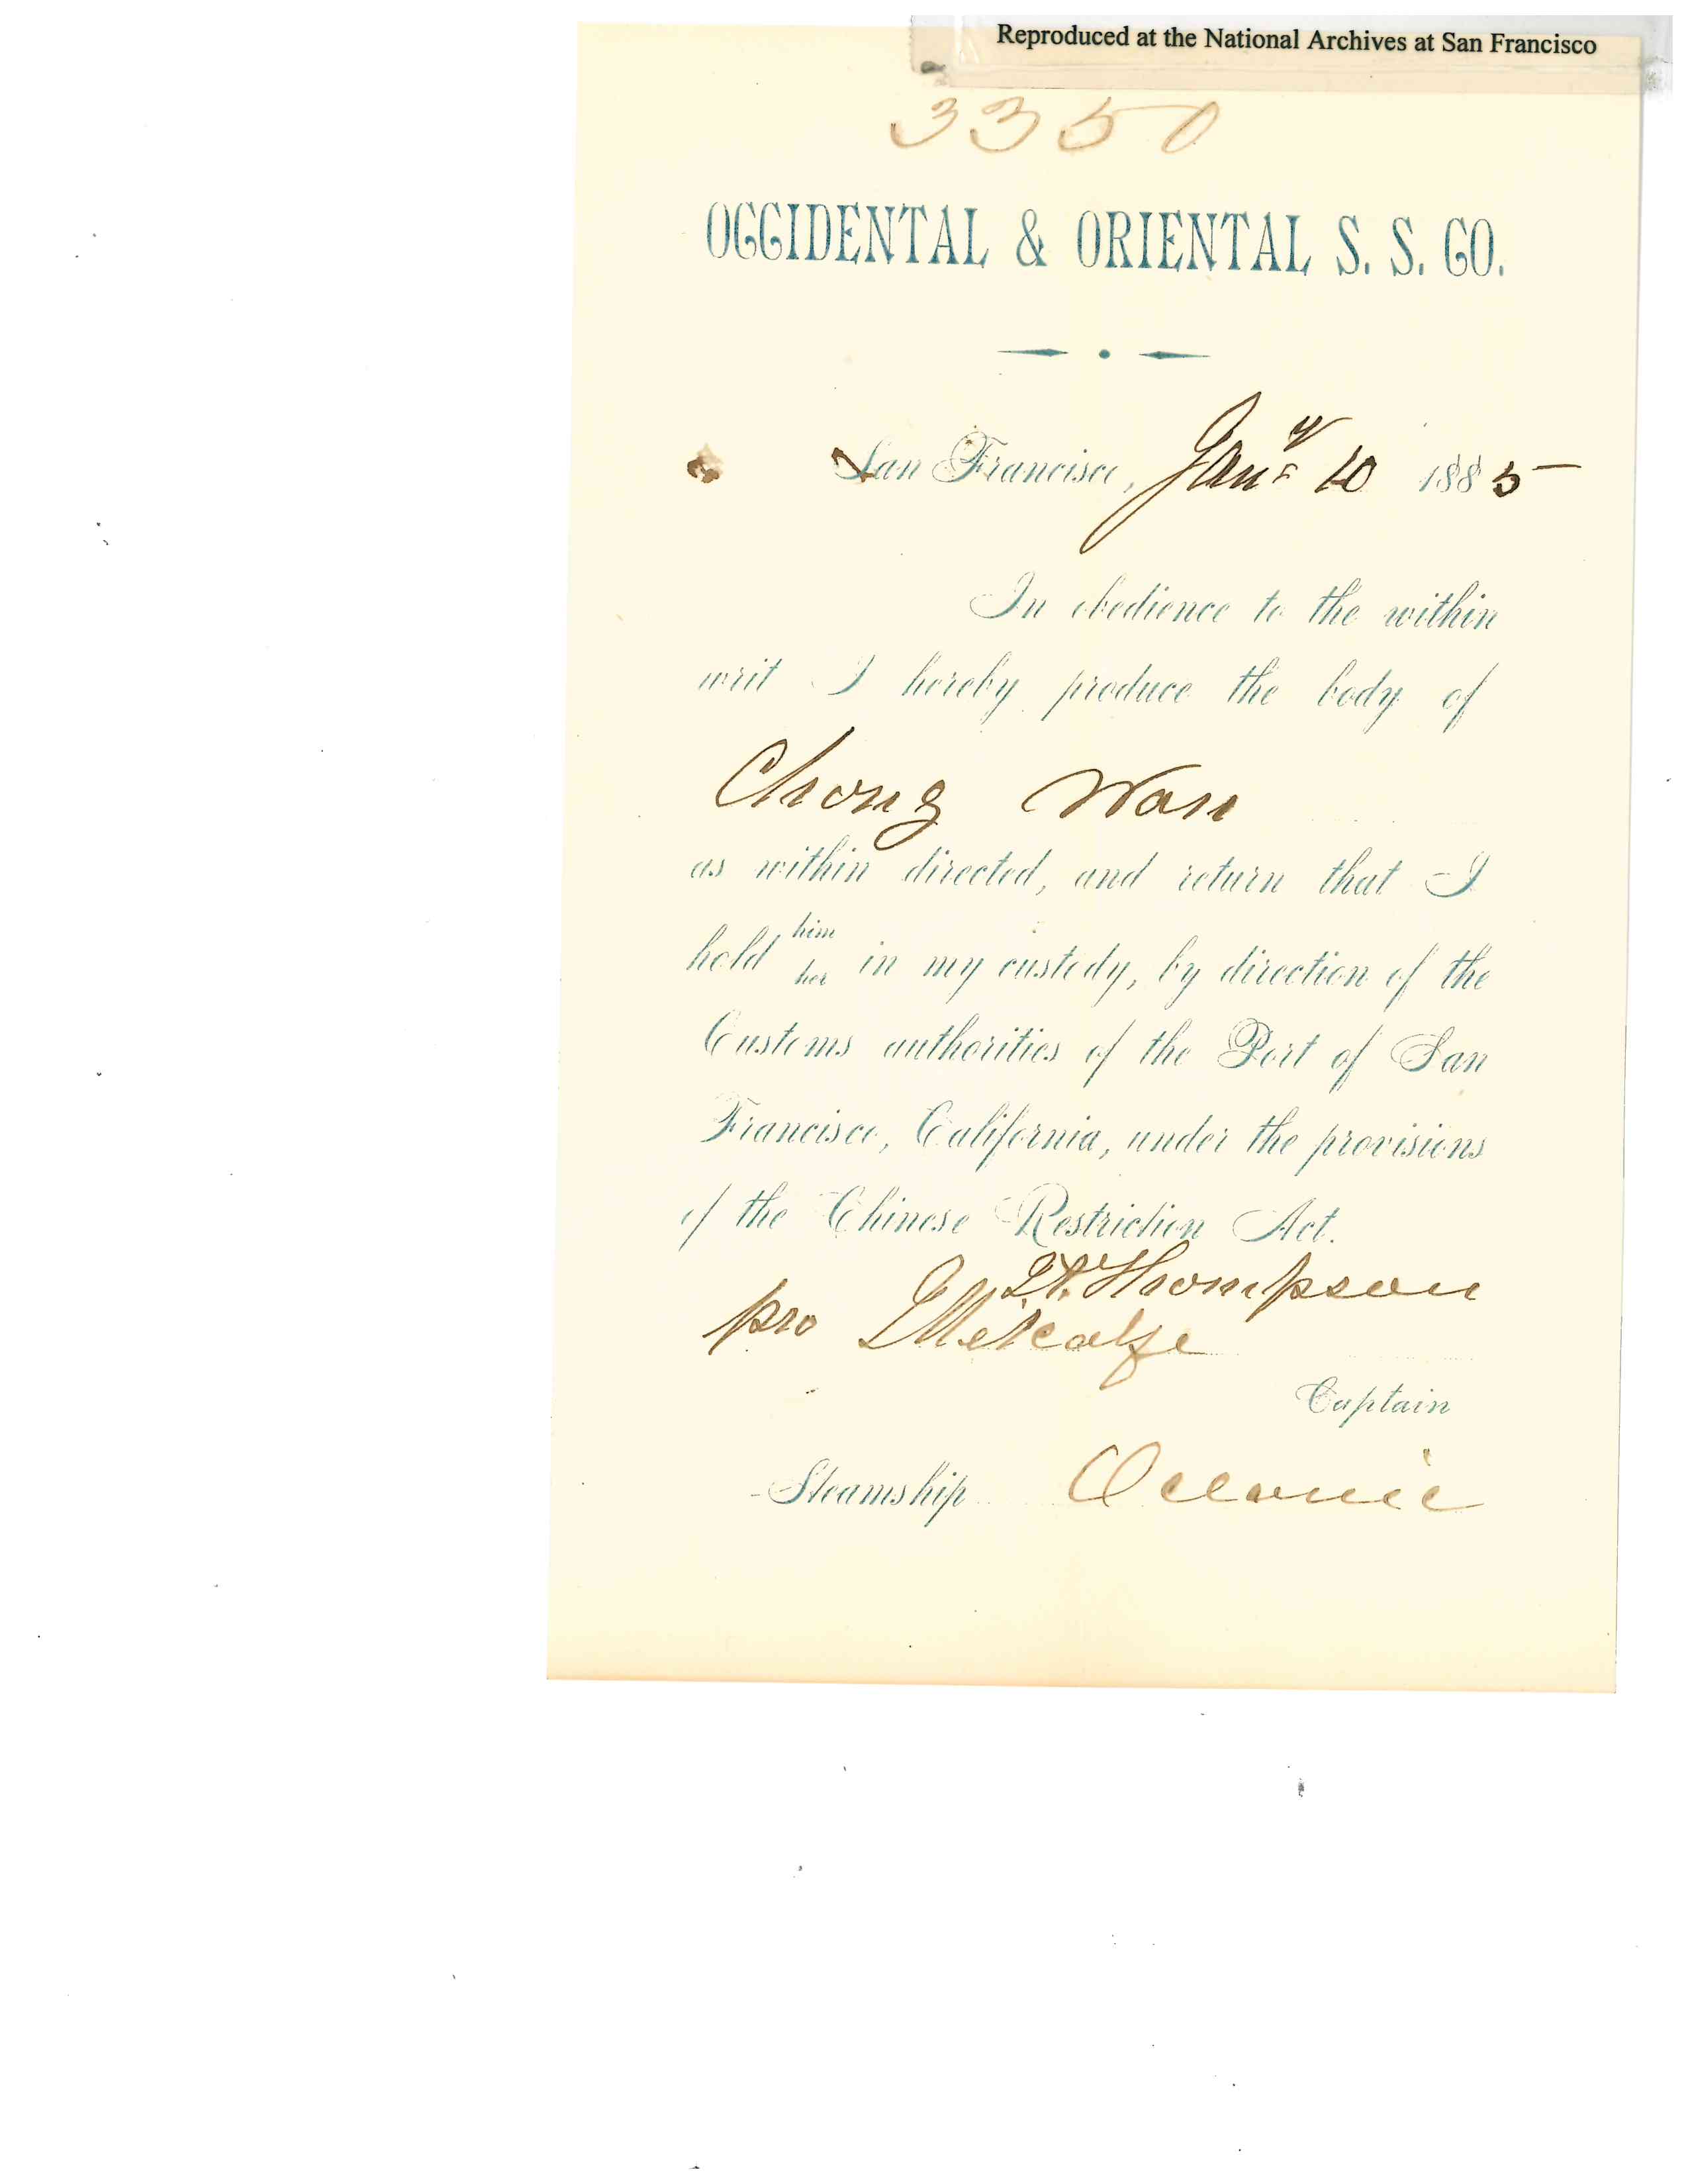 Reproduced at the National Archives at San Francisco
3350
OCCIDENTAL & ORIENTAL S. S. CO.
San Francisco, Jany 10 1885
In obedience to the within
writ I hereby produce the body of
Chong Wan
as within directed, and return that I
hold him her in my custody, by direction of the
Customs authorities of the Port of San
Francisco, California, under the provisions
of the Chinese Restriction Act.
Thompson
pro Metcalfe
Captain
Steamship Oceanic